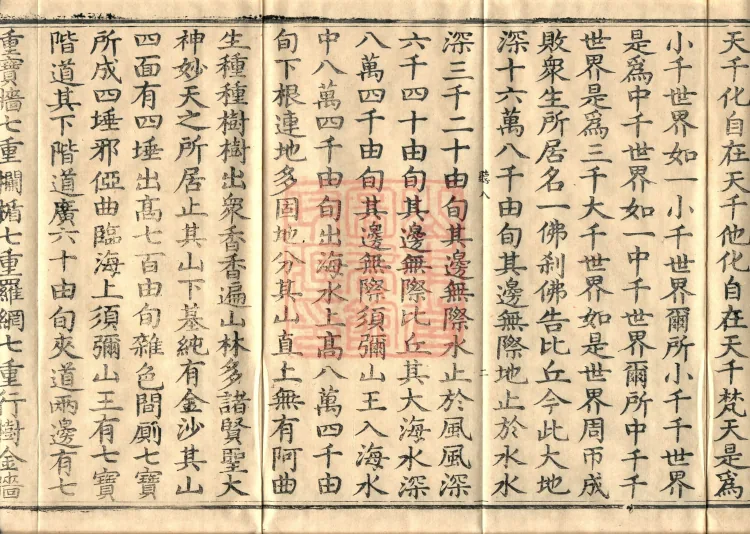 天千化自在天千他化自在天千梵天是爲
小千世界如一小千世界爾所小千千世界
是爲中千世界如一中千世界爾所中千千
世界是爲三千大千世界如是世界周帀成
敗衆生所居名一佛刹佛告比丘今此大地
深十六萬八千由旬其邊無際地止於水水
二
深三千二十由旬其邊無際水止於風風深
六千四十由旬其邊無際比丘其大海水深
八萬四千由旬其邊無際須彌山王入海水
中八萬四千由旬出海水上髙八萬四千由
旬下根連地多固地分其山直上無有阿曲
生種種樹樹出衆香香遍山林多諸賢聖大
神妙天之所居止其山下基純有金沙其山
四面有四埵出髙七百由旬雜色間厠七寶
所成四埵邪俹曲臨海上須彌山王有七寶
階道其下階道廣六十由旬夾道兩邊有七
重寶墻七重欄楯七重羅網七重行樹金墻